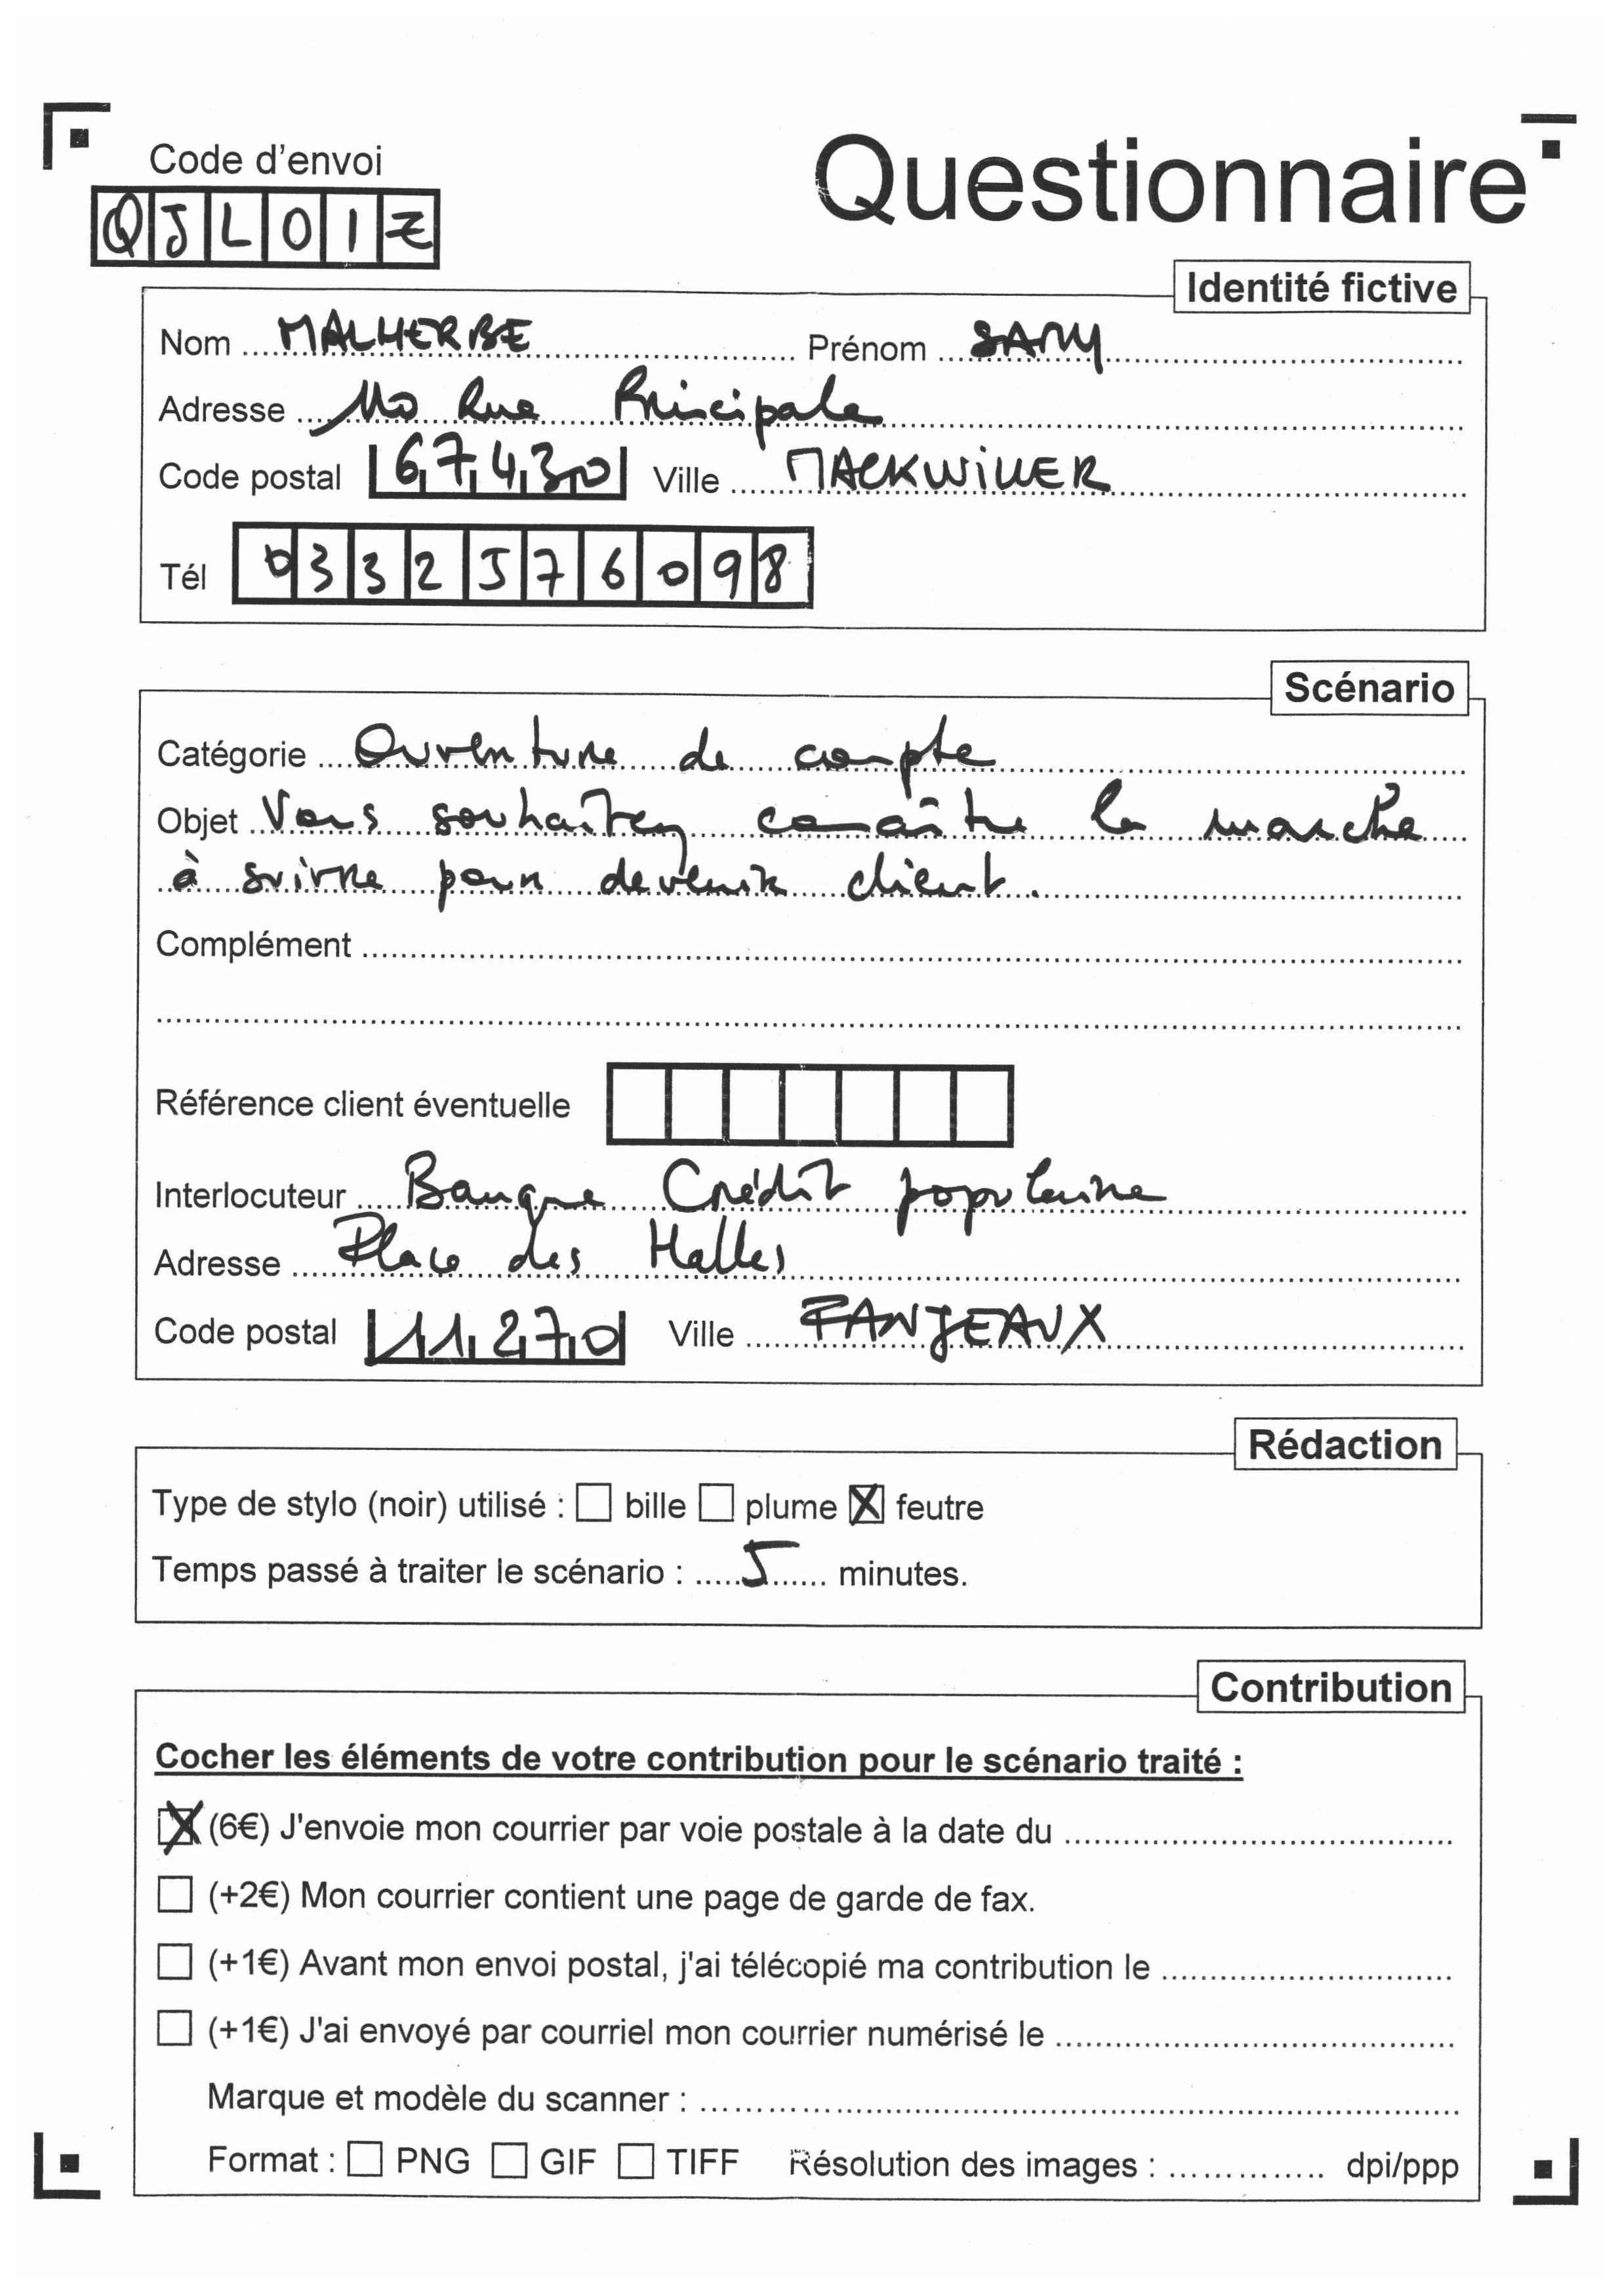 Code d'envoi
Questionnaire
QJL01Z
Identité fictive
Nom MALHERBE Prénom SAMY
Adresse 110 Rue Principale
Code postal 67430 Ville MACKWILLER
Tél 0332576098
Scénario
Catégorie Ouverture de compte
Objet Vous souhaitez connaître la marche
à suivre pour devenir client.
Complément
Référence client éventuelle
Interlocuteur Banque Crédit populaire
Adresse Place des Halles
Code postal 11270 Ville FANJEAUX
Rédaction
Type de stylo (noir) utilisé : ☐ bille ☐ plume ☒ feutre
Temps passé à traiter le scénario : 5 minutes.
Contribution
Cocher les éléments de votre contribution pour le scénario traité :
☒ (6€) J'envoie mon courrier par voie postale à la date du
☐ (+2€) Mon courrier contient une page de garde de fax.
☐ (+1€) Avant mon envoi postal, j'ai télécopié ma contribution le
☐ (+1€) J'ai envoyé par courriel mon courrier numérisé le
Marque et modèle du scanner :
Format : ☐ PNG ☐ GIF ☐ TIFF Résolution des images : dpi/ppp